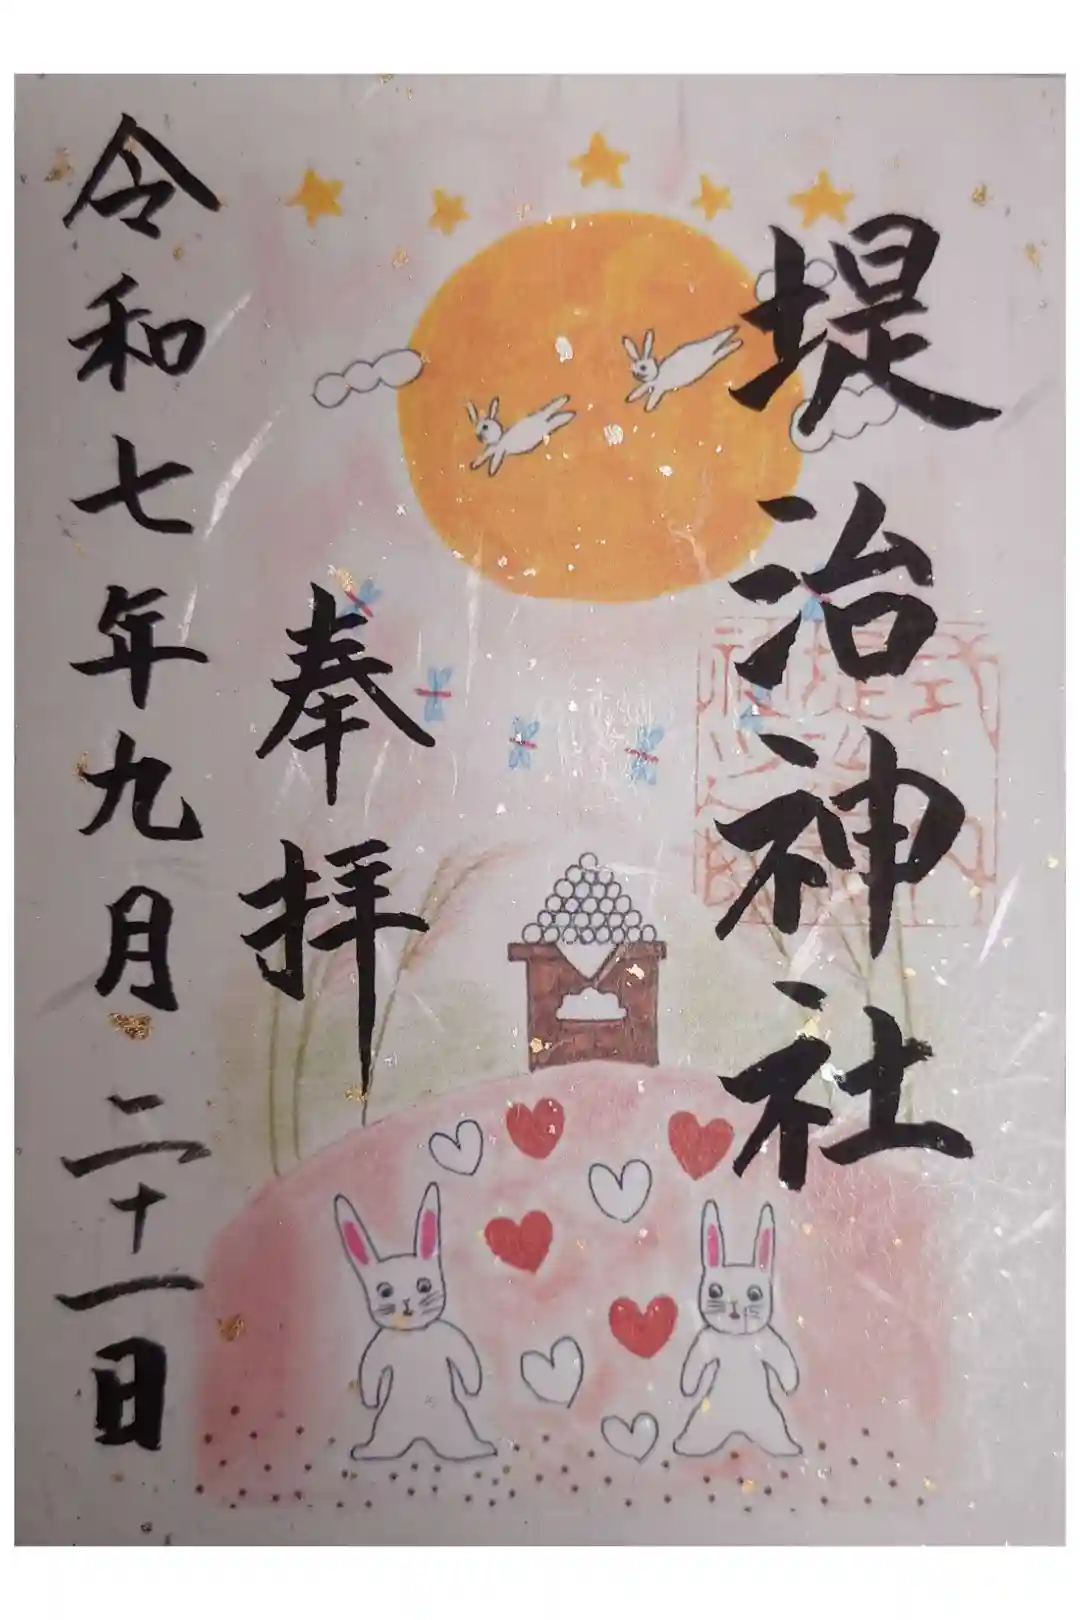 堤治神社
奉拝
令和七年九月二十一日